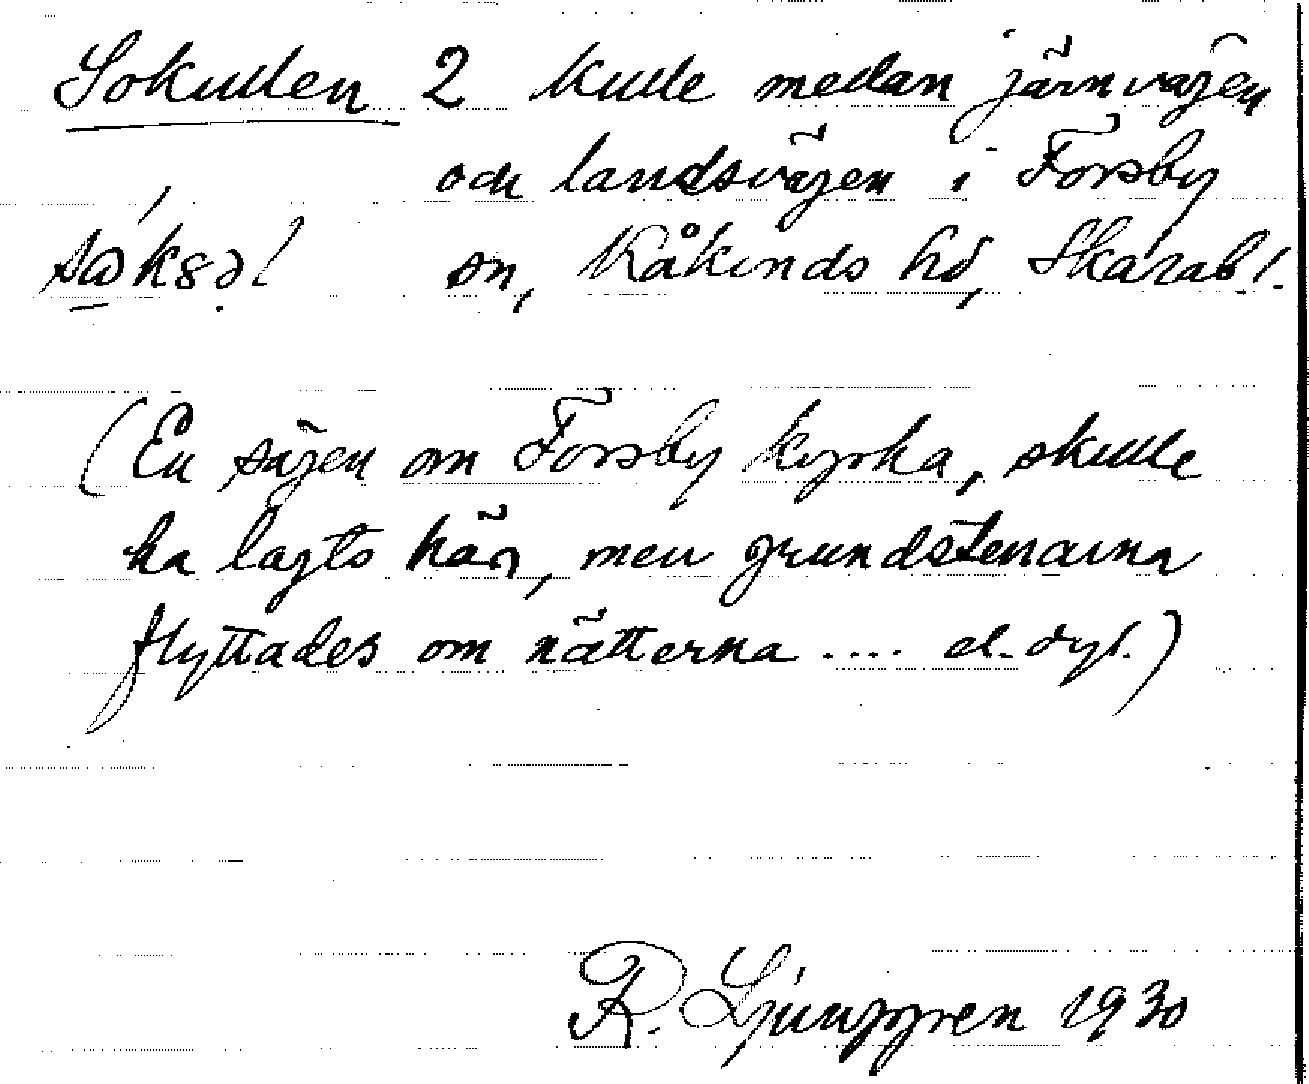 Sokullen 2 kulle mellan järnvägen
och landsvägen i Forsby
sn, Kåkinds hd, Skarab.l.
(En sägen om Forsby kyrka, skulle
ha lagts här, men grundstenarna
flyttades om nätterna .... el. dyl.)
R. Ljunggren 1930